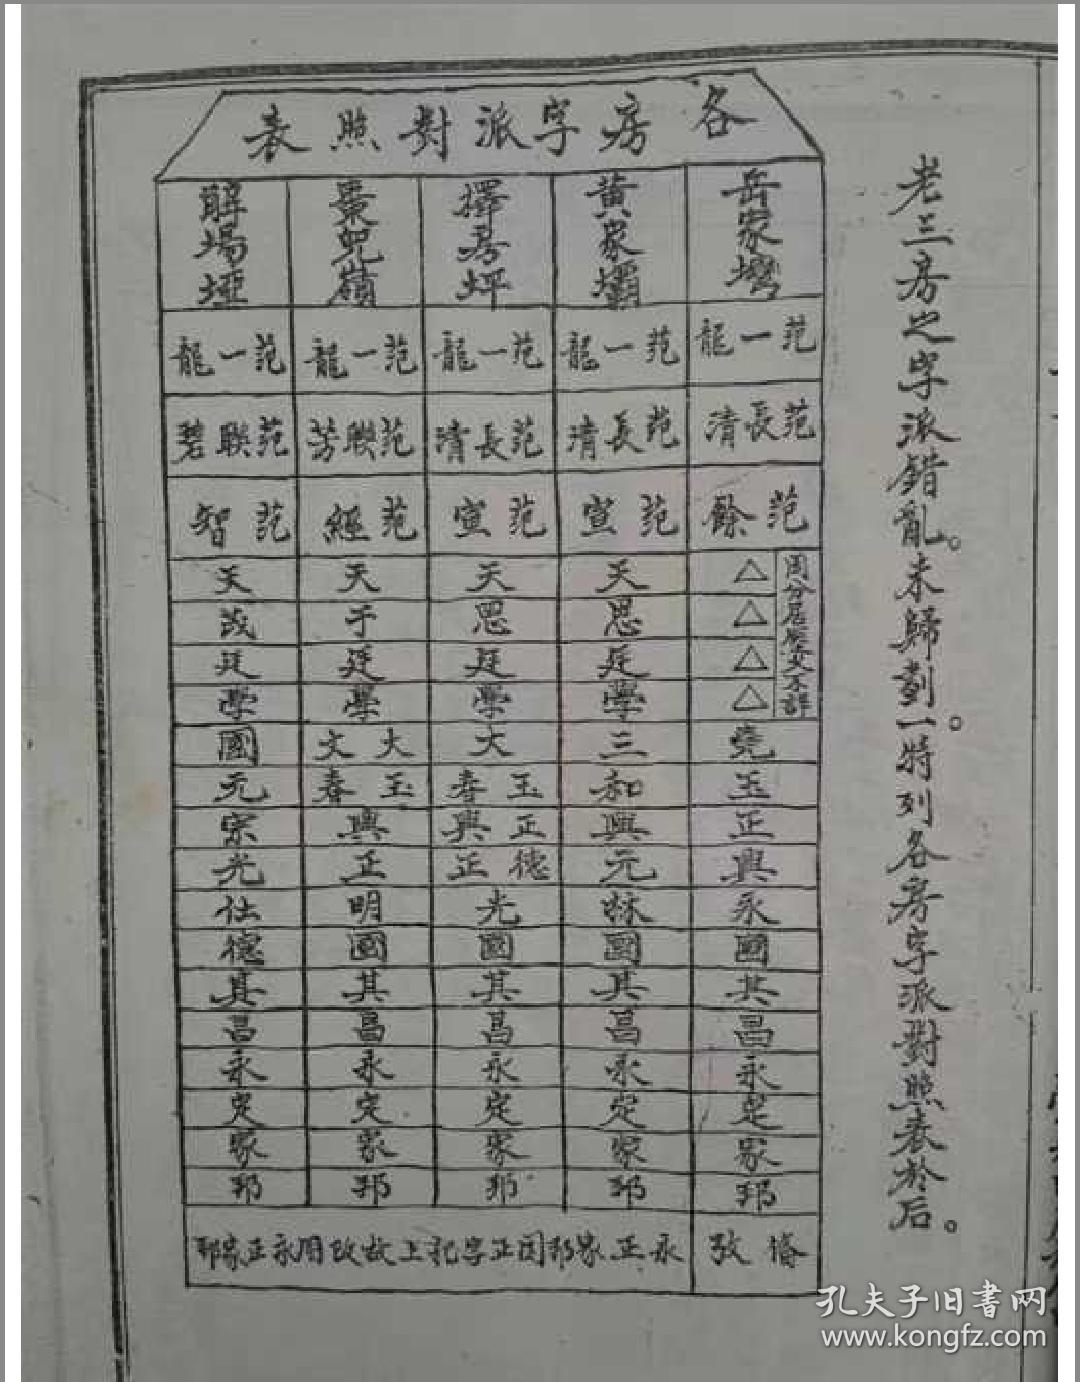 老三房之字派錯亂。未歸劃一。特列各房字派對照表於后。
各房字派對照表
岳家灣 黄家壩 擇易坪 棗兜嶺 解場埡
范一龍 范一龍 范一龍 范一龍 范一龍
范長清 范長清 范長清 范聯芳 范聯碧
范餘 范宣 范宣 范經 范智
因分居歷文不詳
△ 天 天 天 天
△ 思 思 于 茂
△ 廷 廷 廷 廷
△ 學 學 學 學
堯 三 大 大文 國
玉 和 玉春 玉春 元
正 興 正興 興 宗
興 元 德正 正 光
永 林 光 明 仕
國 國 國 國 德
其 其 其 其 其
昌 昌 昌 昌 昌
永 永 永 永 永
定 定 定 定 定
家 家 家 家 家
邦 邦 邦 邦 邦
備攷 永正家邦因正字犯上故改用永正家邦
孔夫子旧書网
www.kongfz.com